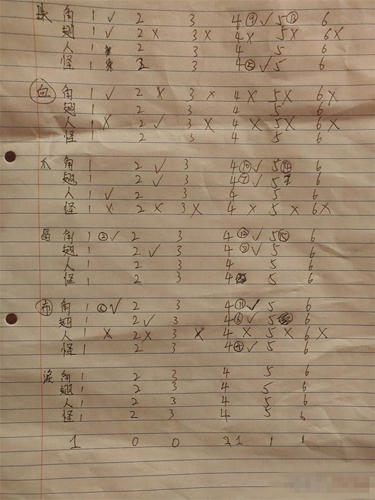 角 1 ✓ 2 3 4 ⑨ ✓ 5 ⑪ 6
翅 1 ✓ 2 X 3 X 4 X 5 X 6 X
人 1 2 3 4 5 6
怪 1 2 3 4 ✓ 5 6
白 角 1 ✓ 2 X 3 X 4 X 5 X 6 X
翅 1 2 3 4 5 6
人 1 X 2 ✓ 3 X 4 X 5 X 6 X
怪 1 2 3 4 5 6
爪 角 1 2 ✓ 3 4 ⑩ ✓ 5 ⑭ 6
翅 1 2 ✓ 3 4 ⑦ ✓ 5 6
人 1 ✓ 2 3 4 5 6
怪 1 X 2 X 3 X 4 X 5 X 6 X
角 1 ③ ✓ 2 3 4 ✓ 5 6
翅 1 2 ✓ 3 4 ✓ 5 6
人 1 2 3 4 5 6
怪 1 2 3 4 5 6
布 角 1 ✓ 2 3 4 ⑪ ✓ 5 6
翅 1 2 ✓ 3 4 ⑥ ✓ 5 6
人 1 X 2 X 3 X 4 X 5 X 6 X
怪 1 2 3 4 ✓ 5 6
角 1 2 3 4 5 6
翅 1 2 3 4 5 6
人 1 2 3 4 5 6
怪 1 2 3 4 5 6
1 0 0 1 1 1